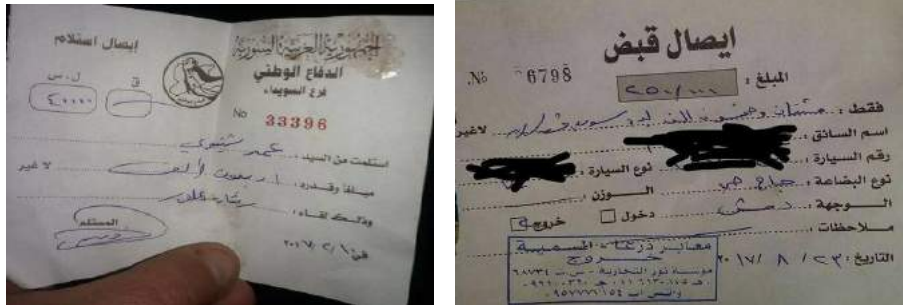 ايصال استلام
الجمهورية العربية السورية
الدفاع الوطني
فرع السويداء
ق
ل.س
٤٠٠٠٠
No 33396
استلمت من السيد : عمر
مبلغاً وقدره : اربعون ألف لا غير
وذلك لقاء :
المستلم
في ٢٠١٧/٢/١
ايصال قبض
No. 6798
المبلغ : ٢٥٠/٠٠٠
فقط : مئتان وخمسون الف ليرة سورية لاغير
اسم السائق :
رقم السيارة : نوع السيارة :
نوع البضاعة : حي الوزن :
الوجهة : دمشق دخول خروج
ملاحظات :
التاريخ : ٢٣ / ٨ / ٢٠١٧
معابر درعا - المسمية
خروج
مؤسسة نور التجارية - س.ت ٦٨٧٣٤
واتس اب